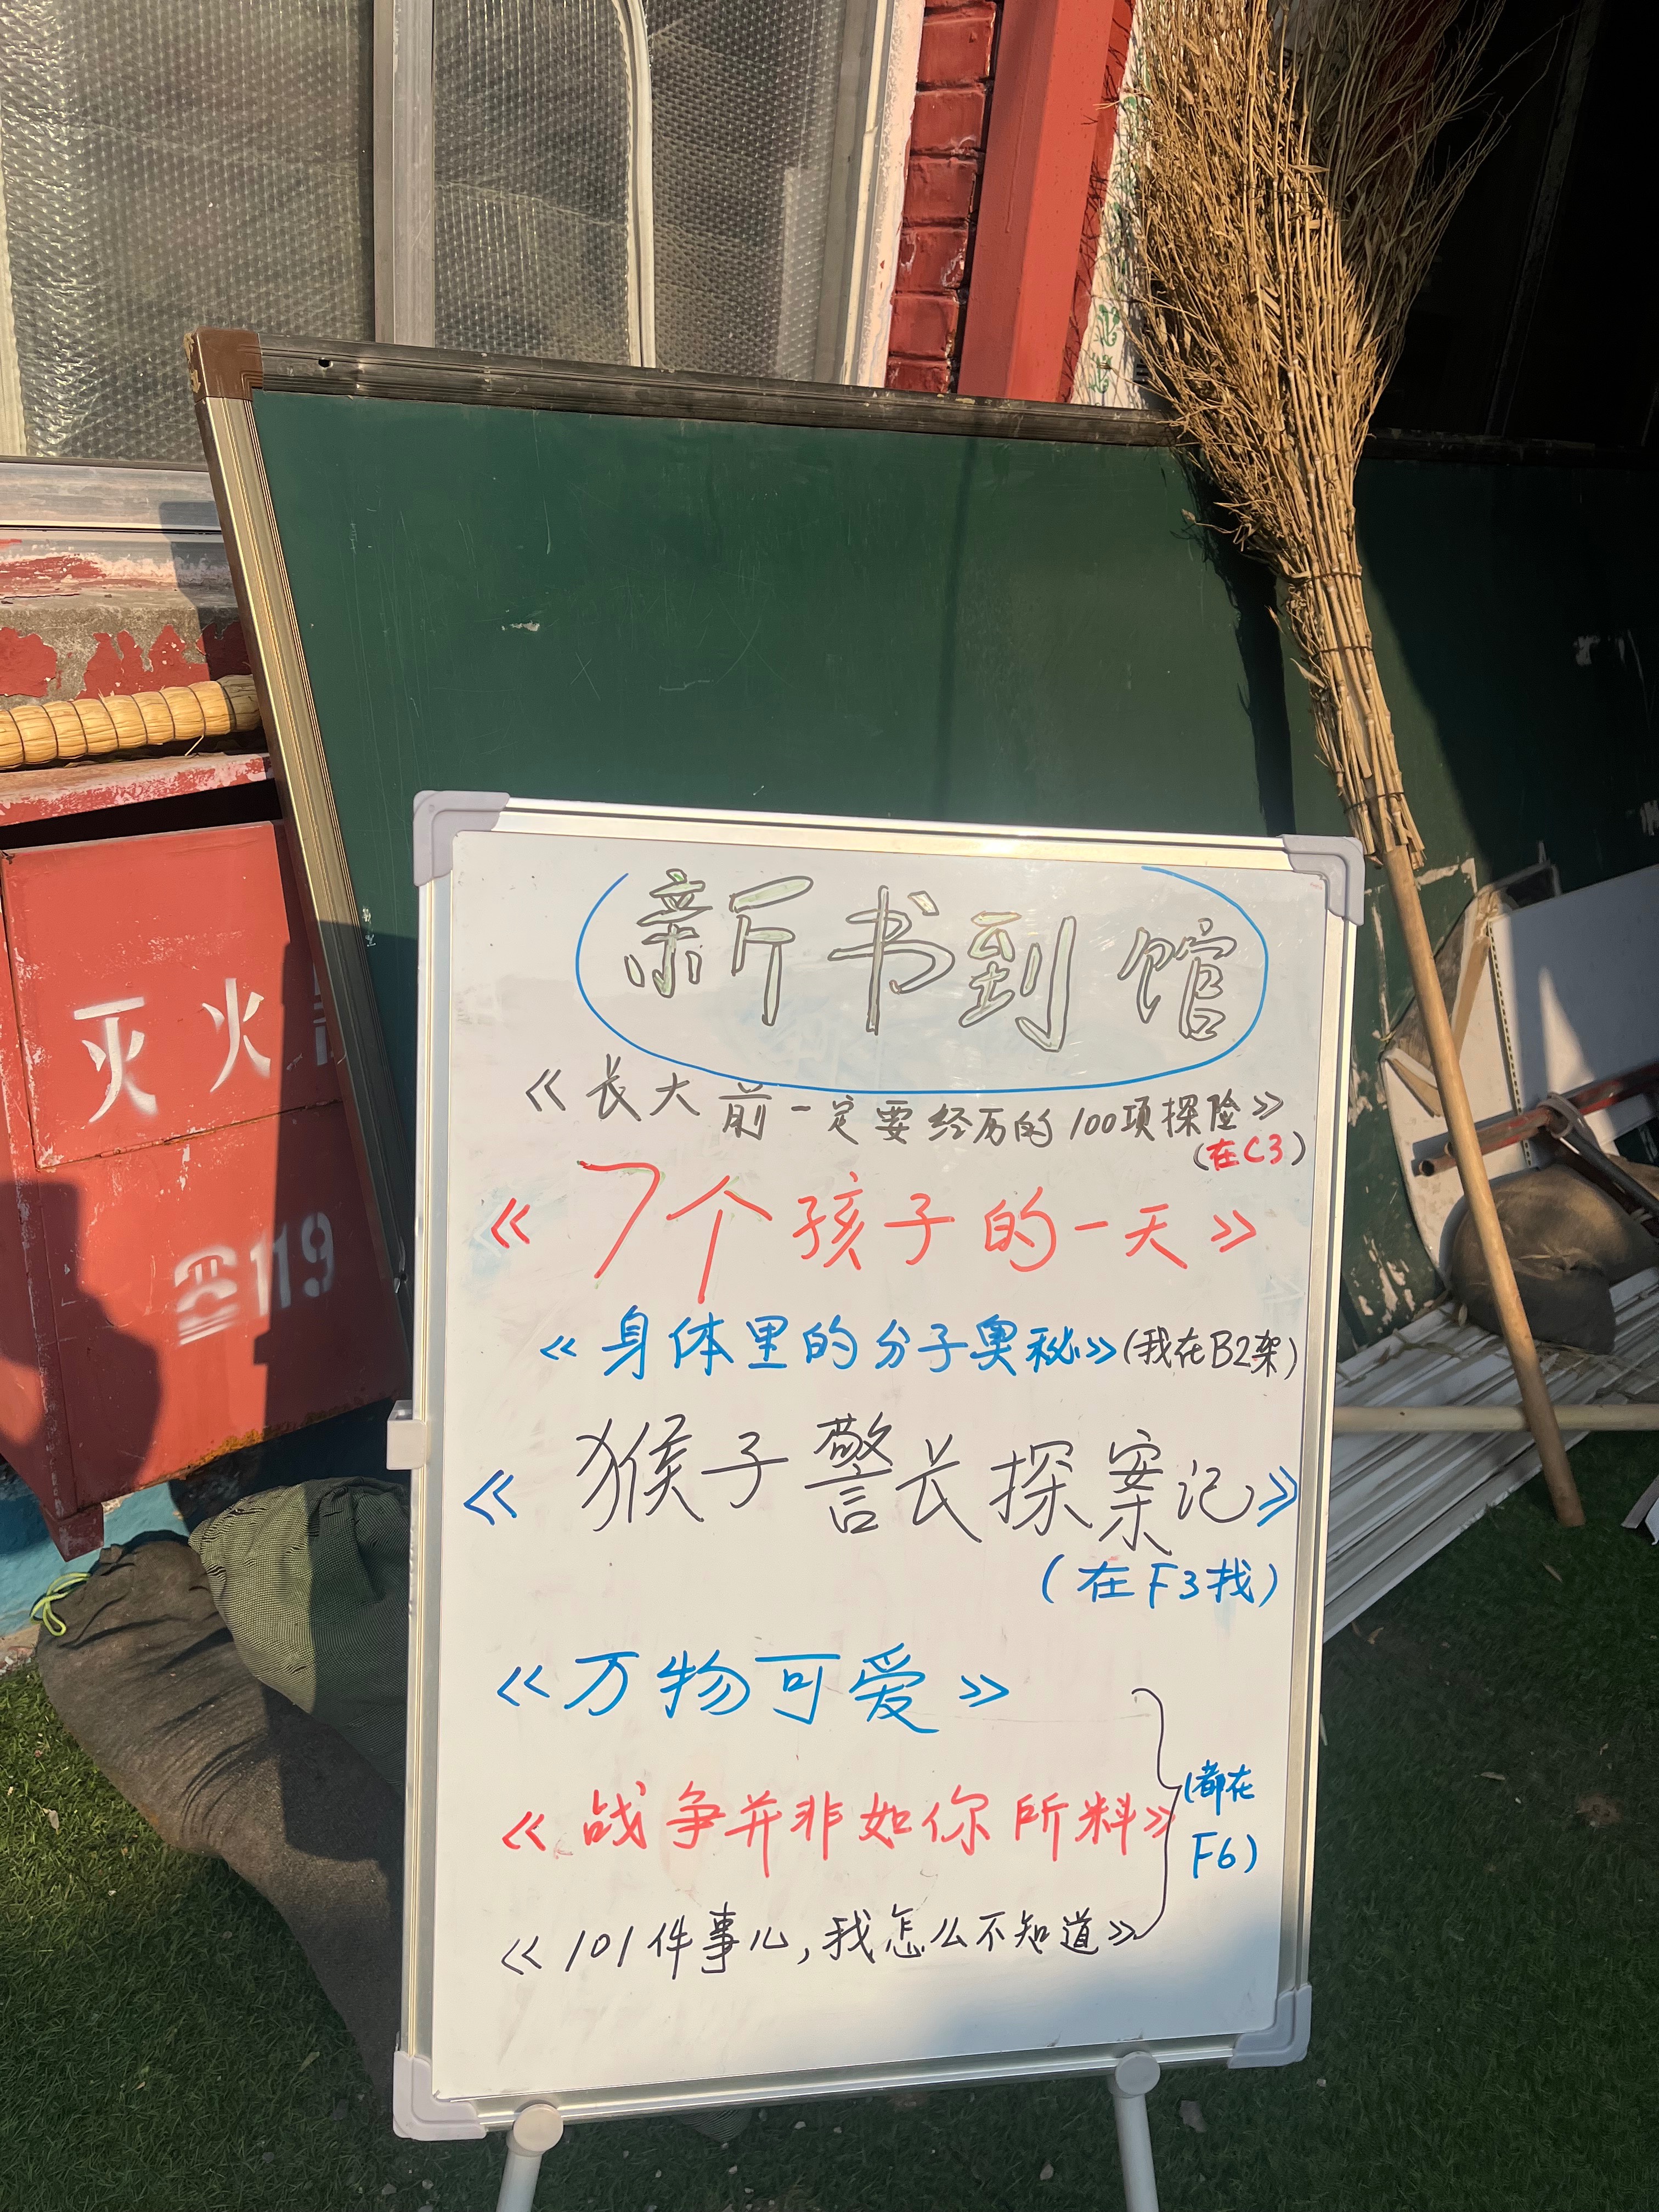 新书到馆
《长大前一定要经历的100项探险》
(在C3)
《7个孩子的一天》
《身体里的分子奥秘》(我在B2架)
《猴子警长探案记》
(在F3找)
《万物可爱》
《战争并非如你所料》
《101件事儿,我怎么不知道》
(都在
F6)
灭火
119